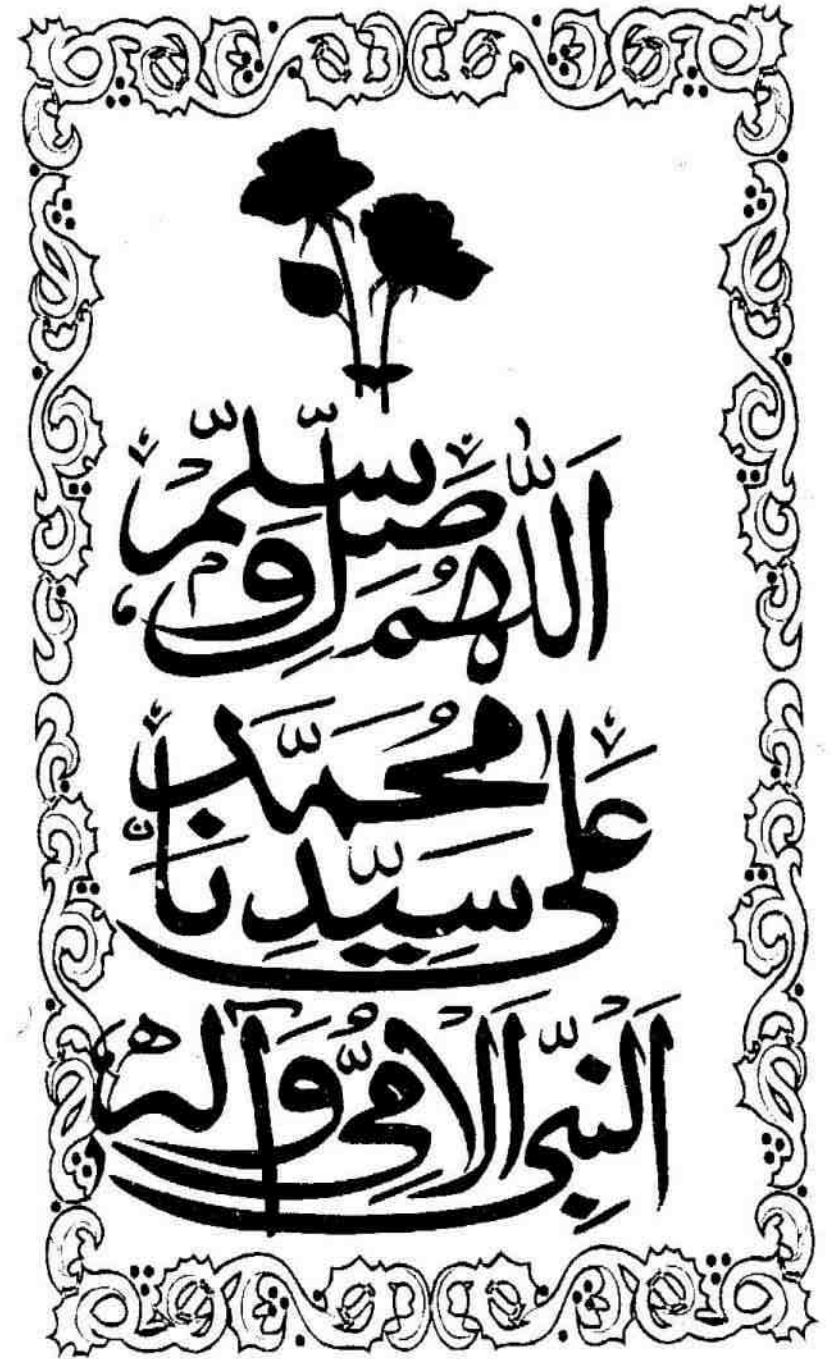 اَللّٰهُمَّ صَلِّ وَسَلِّمْ
عَلٰى سَيِّدِنَا مُحَمَّدٍ
اَلنَّبِىِّ الْاُمِّىِّ وَآلِهٖ